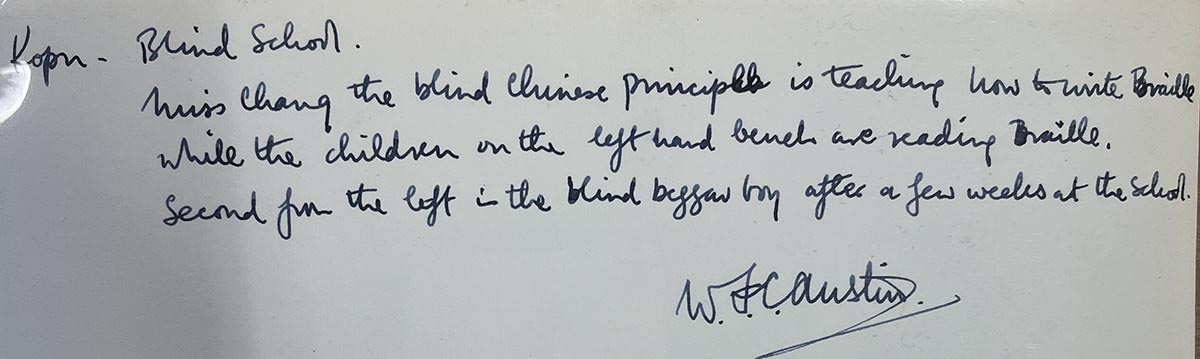 Kopu - Blind School.
Miss Chang the blind Chinese principle is teaching how to write Braille
while the children on the left hand bench are reading Braille.
Second from the left is the blind beggar boy after a few weeks at the School.
W. F. C. Austin.